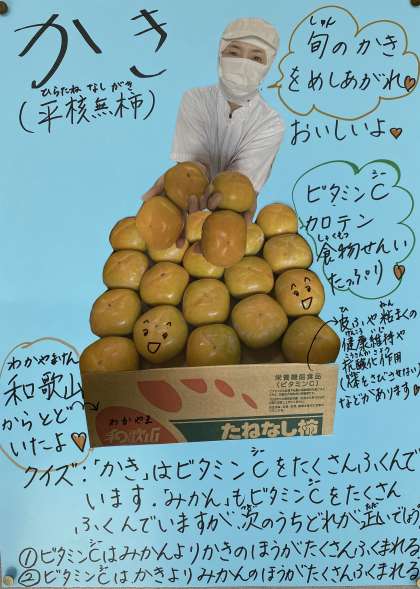 かき
ひらたねなしがき
(平核無柿)
しゅん
旬のかき
をめしあがれ
おいしいよ
ビタミンC
シー
カロテン
しょくもつ
食物せんい
たっぷり
ひ ねん
皮ふや粘まくの
けんこう いじ
健康維持や
こうさんか さよう
抗酸化作用
(体をさびさせない)
などがあります
わかやまけん
和歌山
からとど
いたよ
栄養機能食品
(ビタミンC)
わかやま
たねなし柿
クイズ:「かき」はビタミンCをたくさんふくんで
シー
います。「みかん」もビタミンCをたくさん
シー
ふくんでいますが、次のうちどれが正しいでしょう
つぎ ただ
①ビタミンCはみかんよりかきのほうがたくさんふくまれる
シー
②ビタミンCはかきよりみかんのほうがたくさんふくまれる
シー